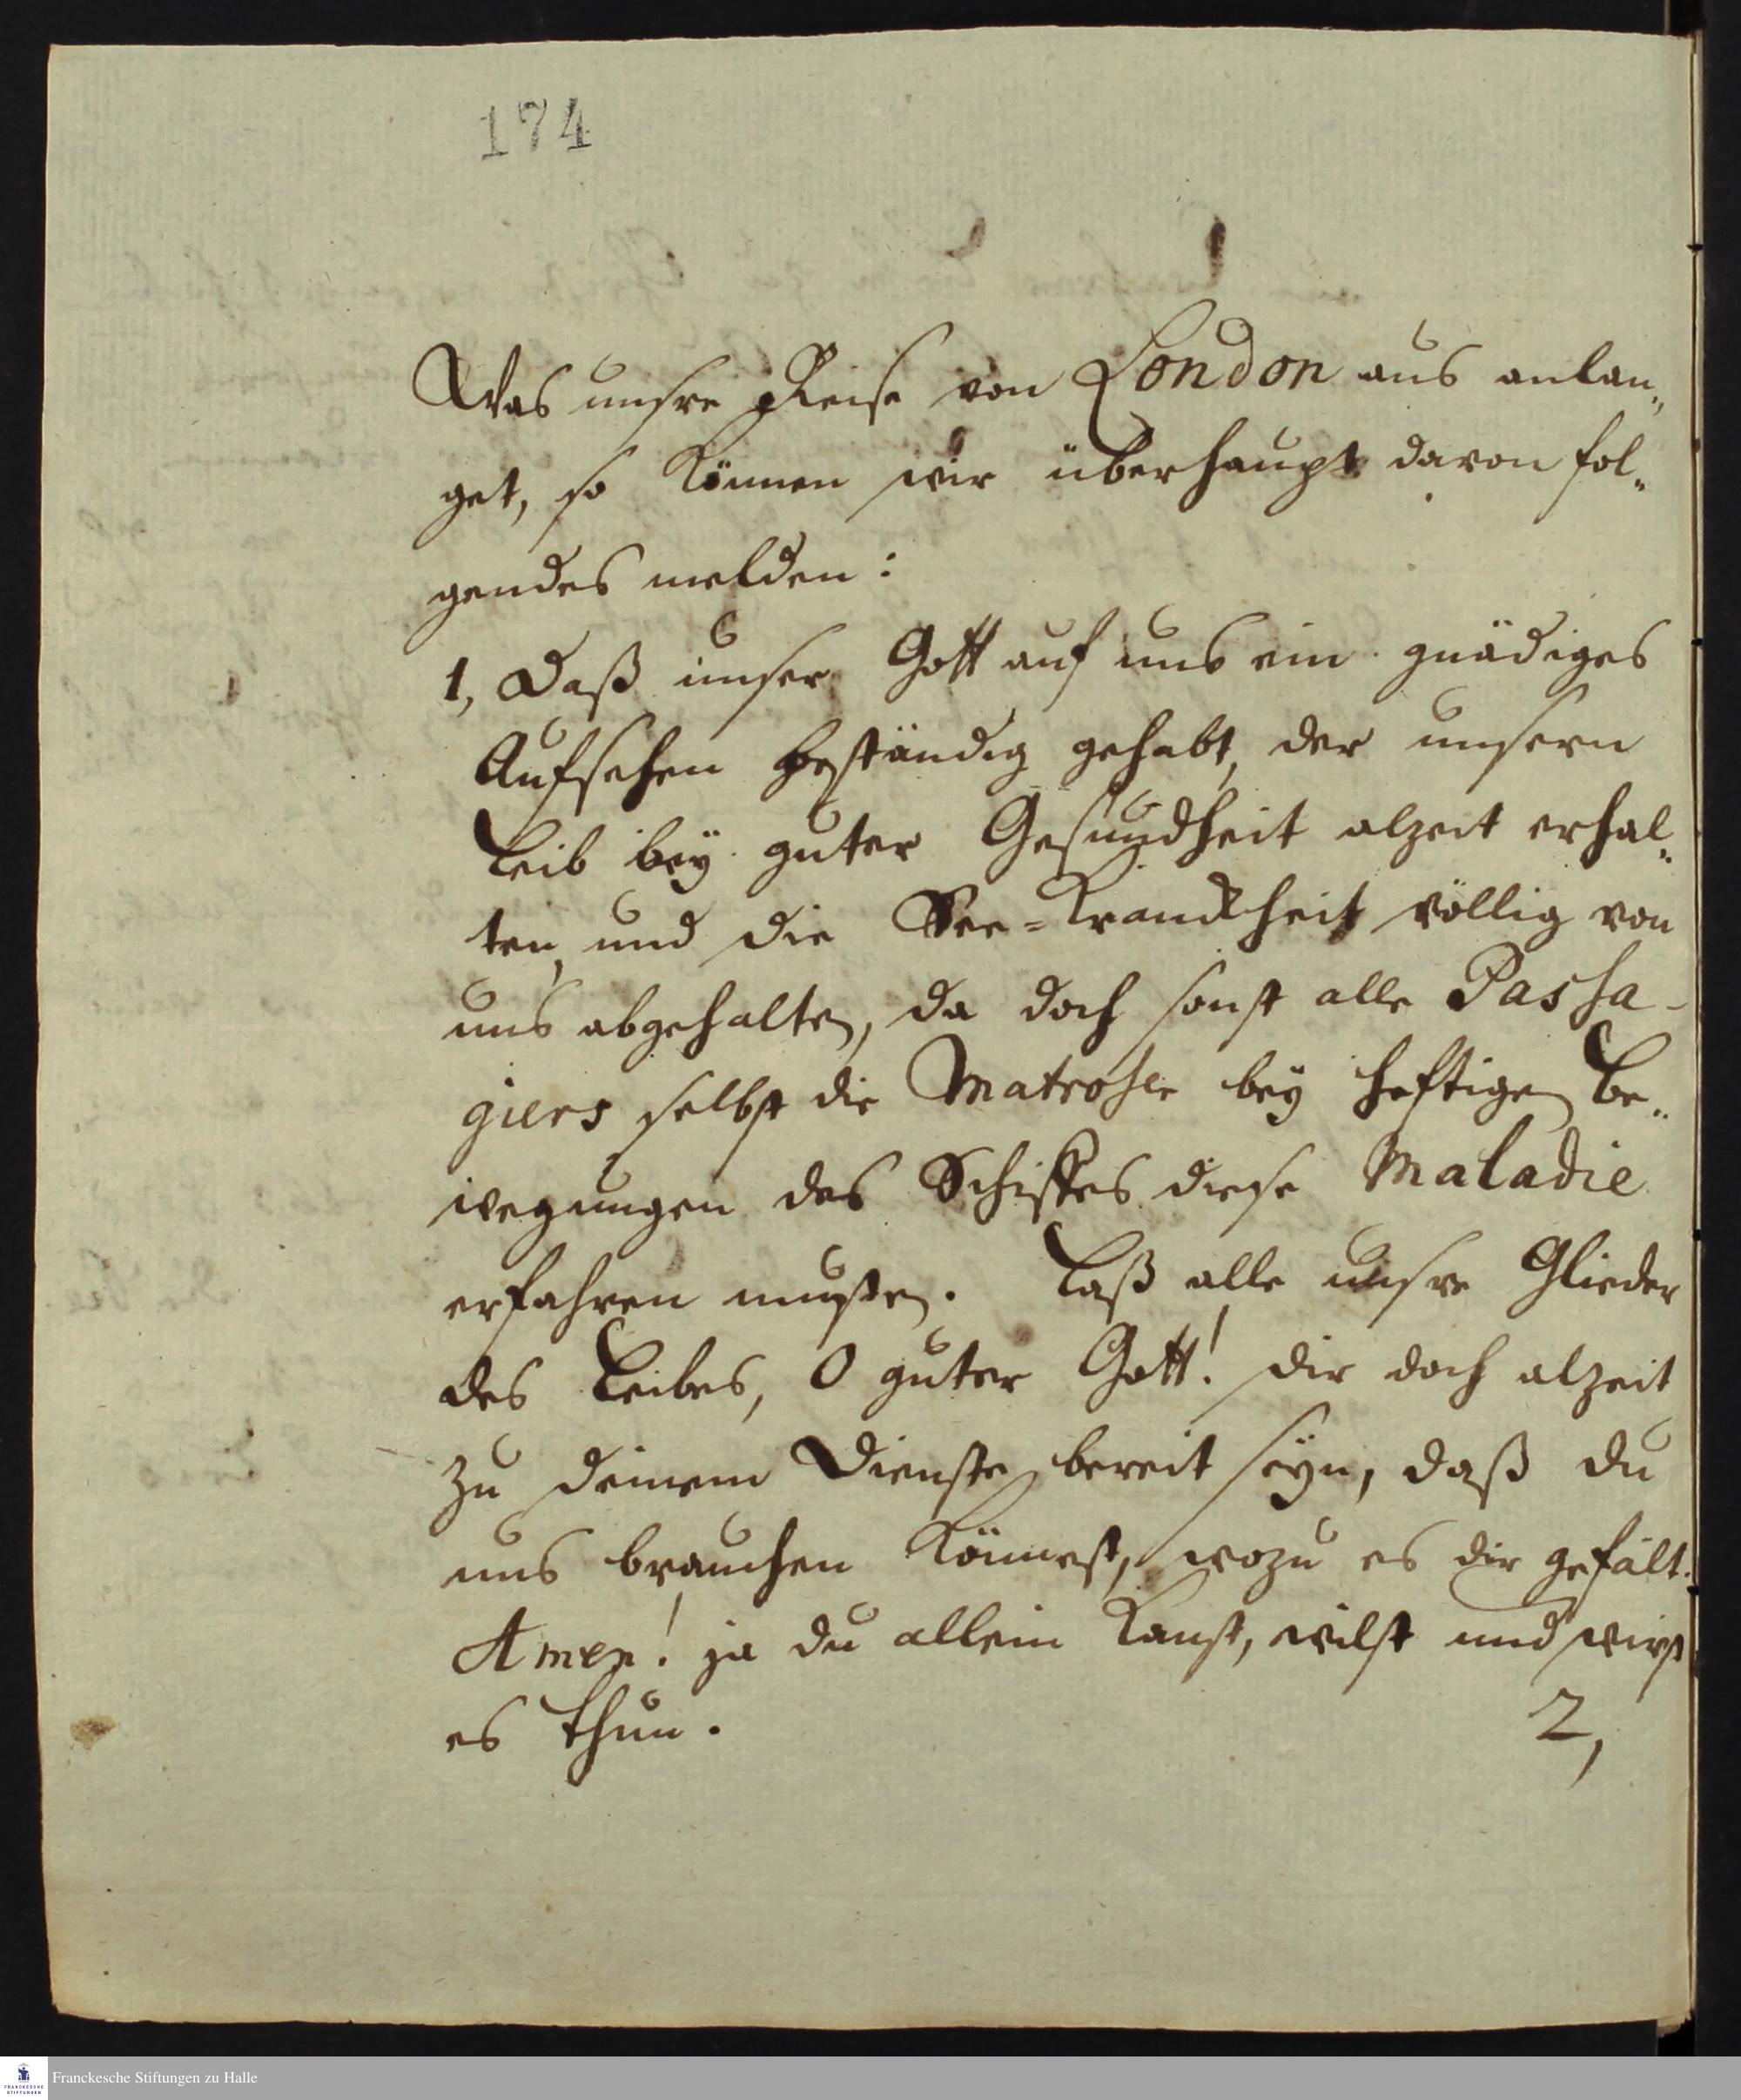 174
Was unsre Reise von London aus anlan„
get, so können wir überhaupt davon fol„
gendes melden:
1, Daß unser Gott auf uns ein gnädiges
Aufsehen beständig gehabt, der unsern
Leib bey guter Gesundheit alzeit erhal„
ten, und die See=Kranckheit völlig von
uns abgehalten, da doch sonst alle Passa-
giers selbst die Matrosen bey heftigen Be„
wegungen des Schiffes diese Maladie
erfahren mußten. Laß alle unsre Glieder
des Leibes, O guter Gott! dir doch alzeit
zu deinem Dienste bereit seyn, daß du
uns brauchen könnest, wozu es dir gefält.
Amen! ja du allein kanst, wilst und wirst
es thun. 2,
FRANCKESCHE STIFTUNGEN
Franckesche Stiftungen zu Halle